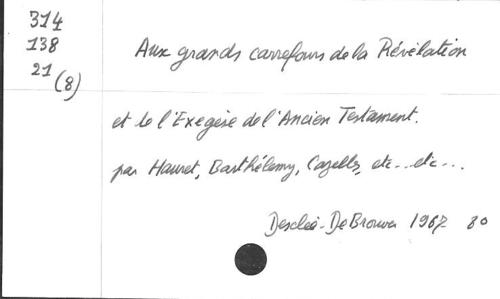 314
138
21
(8)
Aux grands carrefours de la Révélation
et de l'Exégèse de l'Ancien Testament.
par Hauret, Barthélemy, Cazelles, etc... etc...
Desclée-De Brouwer 1967 80